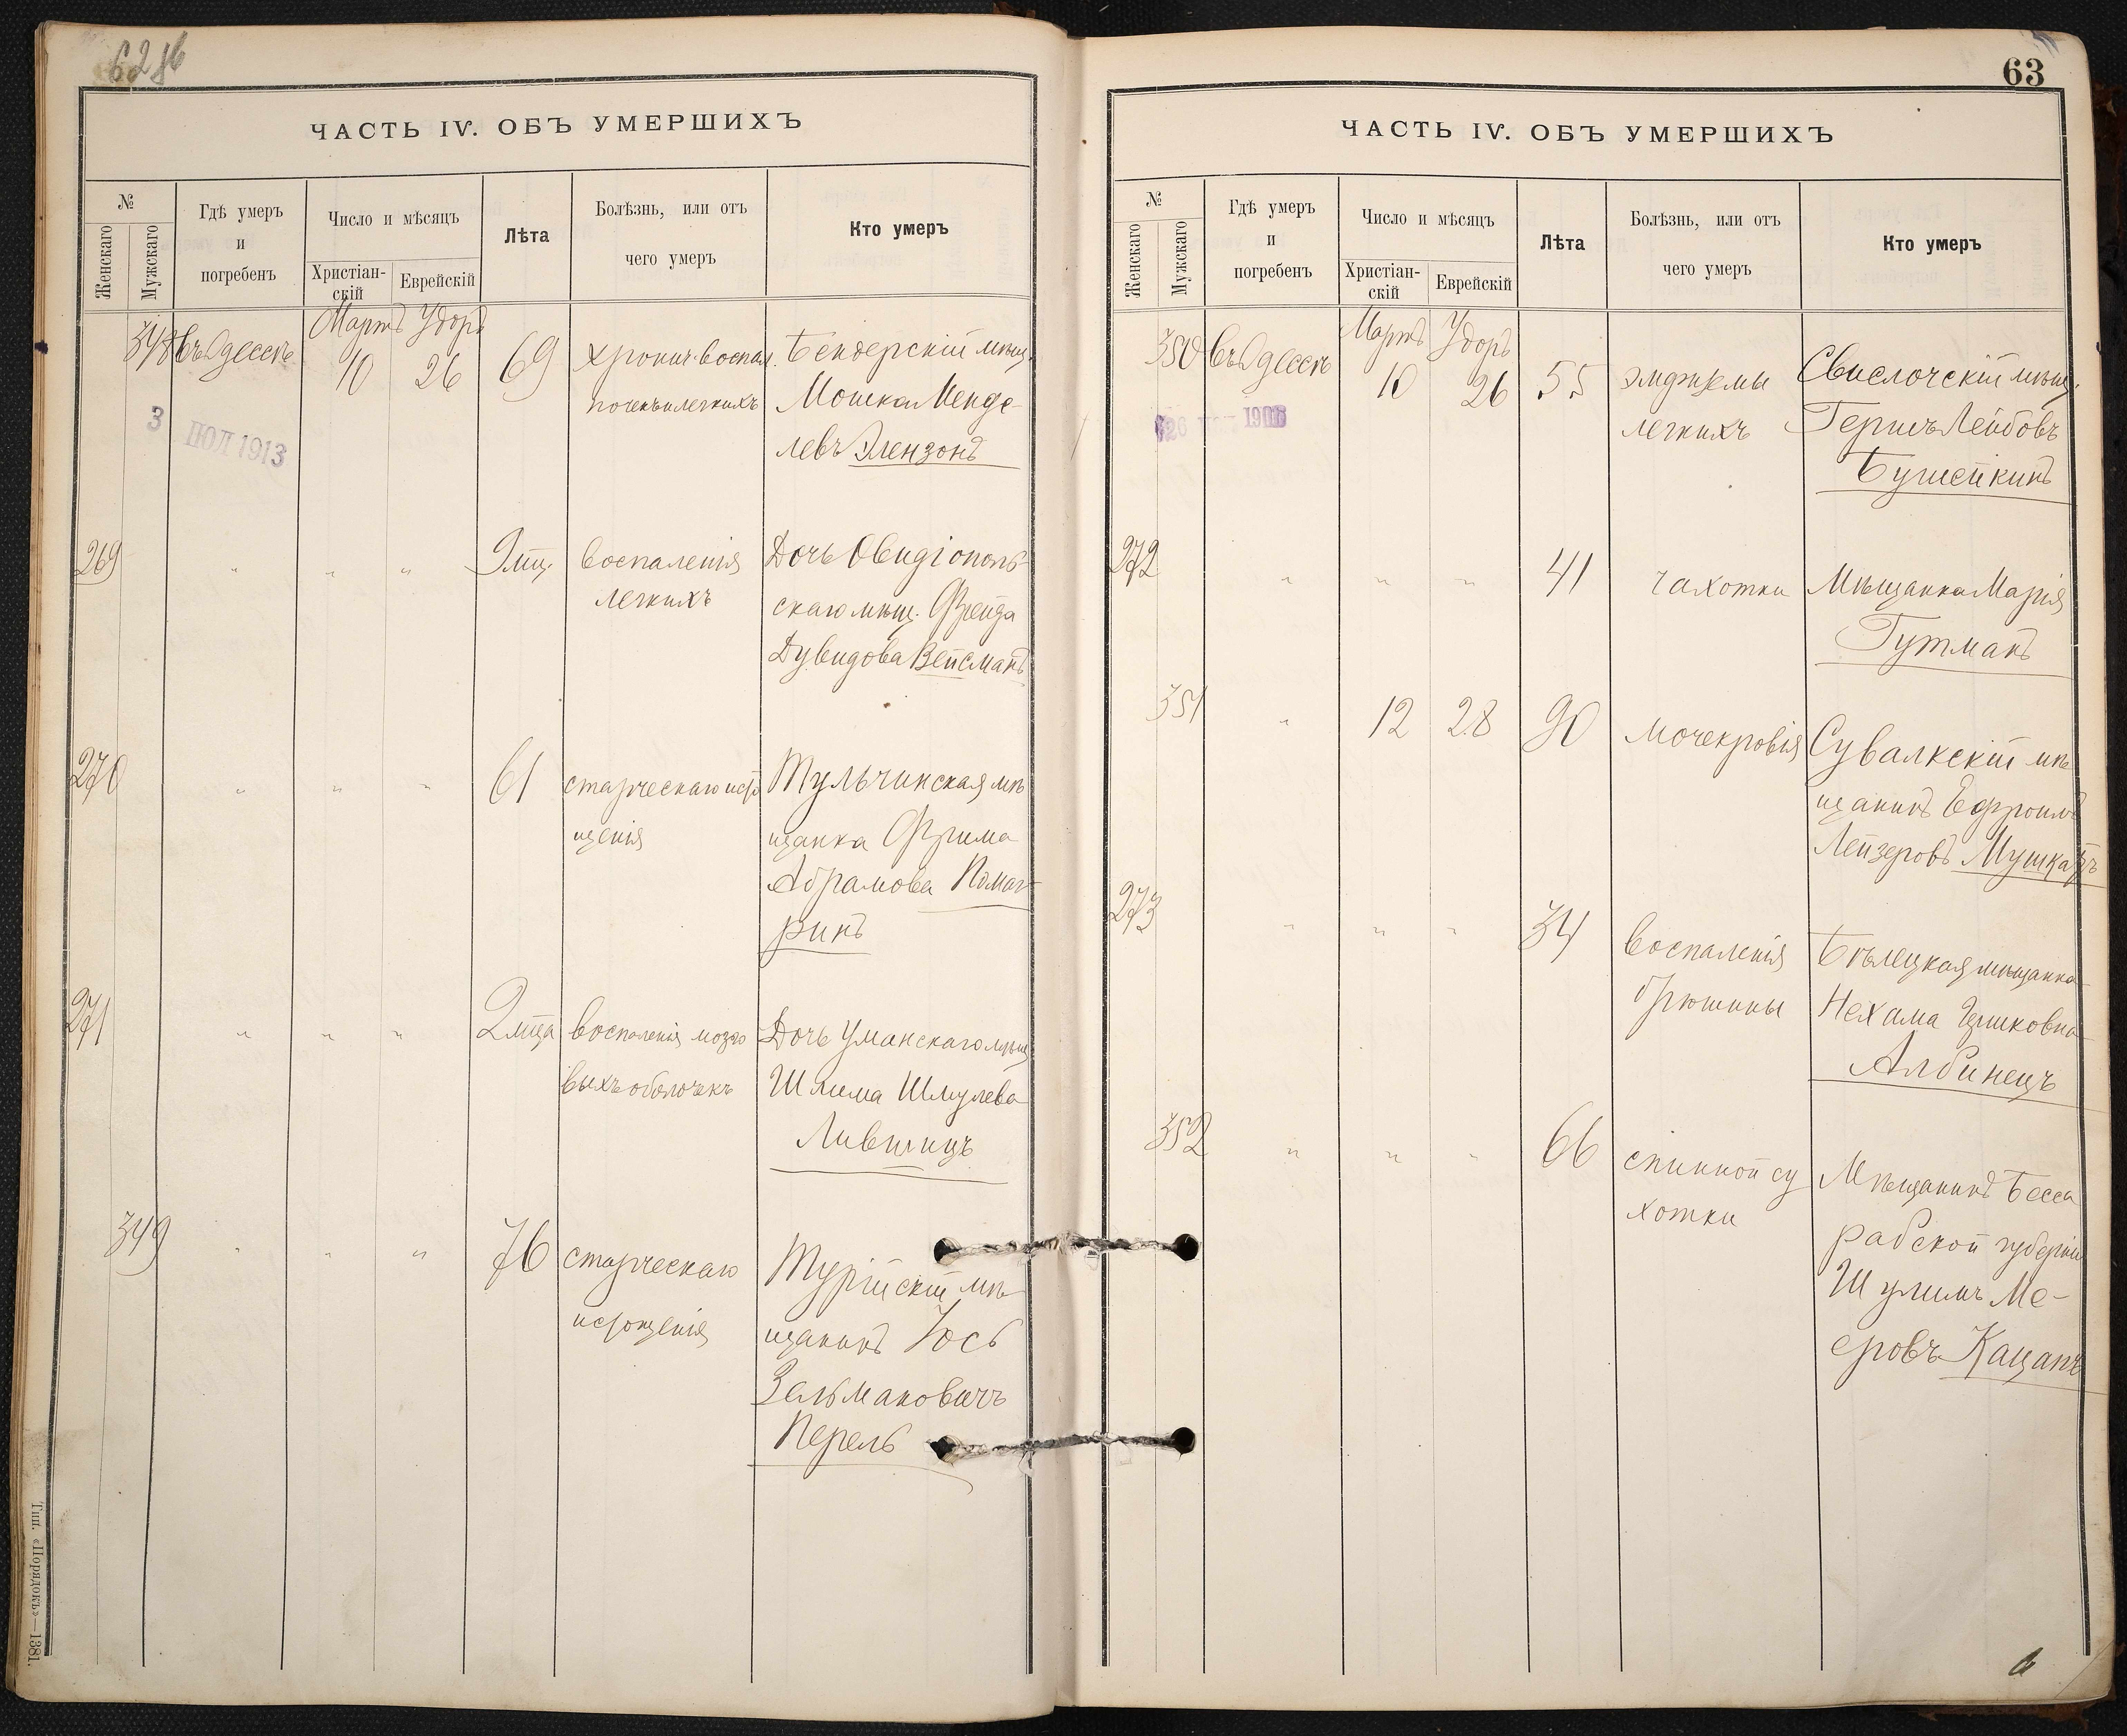 ЧАСТЬ IV. ОБЪ УМЕРШИХЪ
№
Женскаго
Мужскаго
Гдѣ умеръ
и
погребенъ
Число и мѣсяцъ
Христіан-
скій
Еврейскій
Лѣта
Болѣзнь, или отъ
чего умеръ
Кто умеръ
Мартъ Удоръ
348 въ Одессѣ 10 26 69 хронич. воспал. Бендерскій мѣщ.
почекъ и легкихъ Мошка Менде-
левъ Элензонъ
3 ІЮЛ 1913
269 " " " 9 мц. воспаленія Дочь Овидіополь-
легкихъ скаго мѣщ. Фрейда
Дувидова Вейсманъ
270 " " " 61 старческаго исто Тульчинская мѣ
щенія щанка Фрима
Абрамова Помог-
ринъ
271 " " " 2 мца воспаленія мозго Дочь Уманскаго мѣщ
выхъ оболочекъ Шлима Шмулева
Лившицъ
349 " " " 76 старческаго Турійскій мѣ-
истощенія щанинъ Іось
Зельмановичъ
Перель
Тип. «Порядокъ»—1381.
63
ЧАСТЬ IV. ОБЪ УМЕРШИХЪ
№
Женскаго
Мужскаго
Гдѣ умеръ
и
погребенъ
Число и мѣсяцъ
Христіан-
скій
Еврейскій
Лѣта
Болѣзнь, или отъ
чего умеръ
Кто умеръ
Мартъ Удоръ
350 въ Одессѣ 10 26 55 эмфиземы Свислочскій мѣщ.
легкихъ Гершъ Лейбовъ
Бушейкинъ
26 190
272 " " " 41 чахотки Мѣщанка Марія
Гутманъ
351 " 12 28 90 мочекровія Сувалкскій мѣ
щанинъ Ефроимъ
Лейзеровъ Мушкатъ
273 " " " 34 воспаленія Бѣлецкая мѣщанка
брюшины Нехама Ицковна
Албинецъ
352 " " " 66 спинной су Мѣщанинъ Бесса
хотки рабской губерніи
Шулимъ Ме-
еровъ Кацапъ